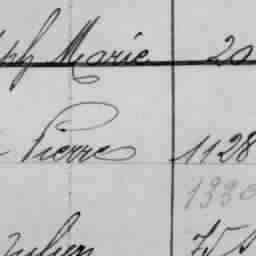 Marie 20
Pierre 1128
1330
Julien